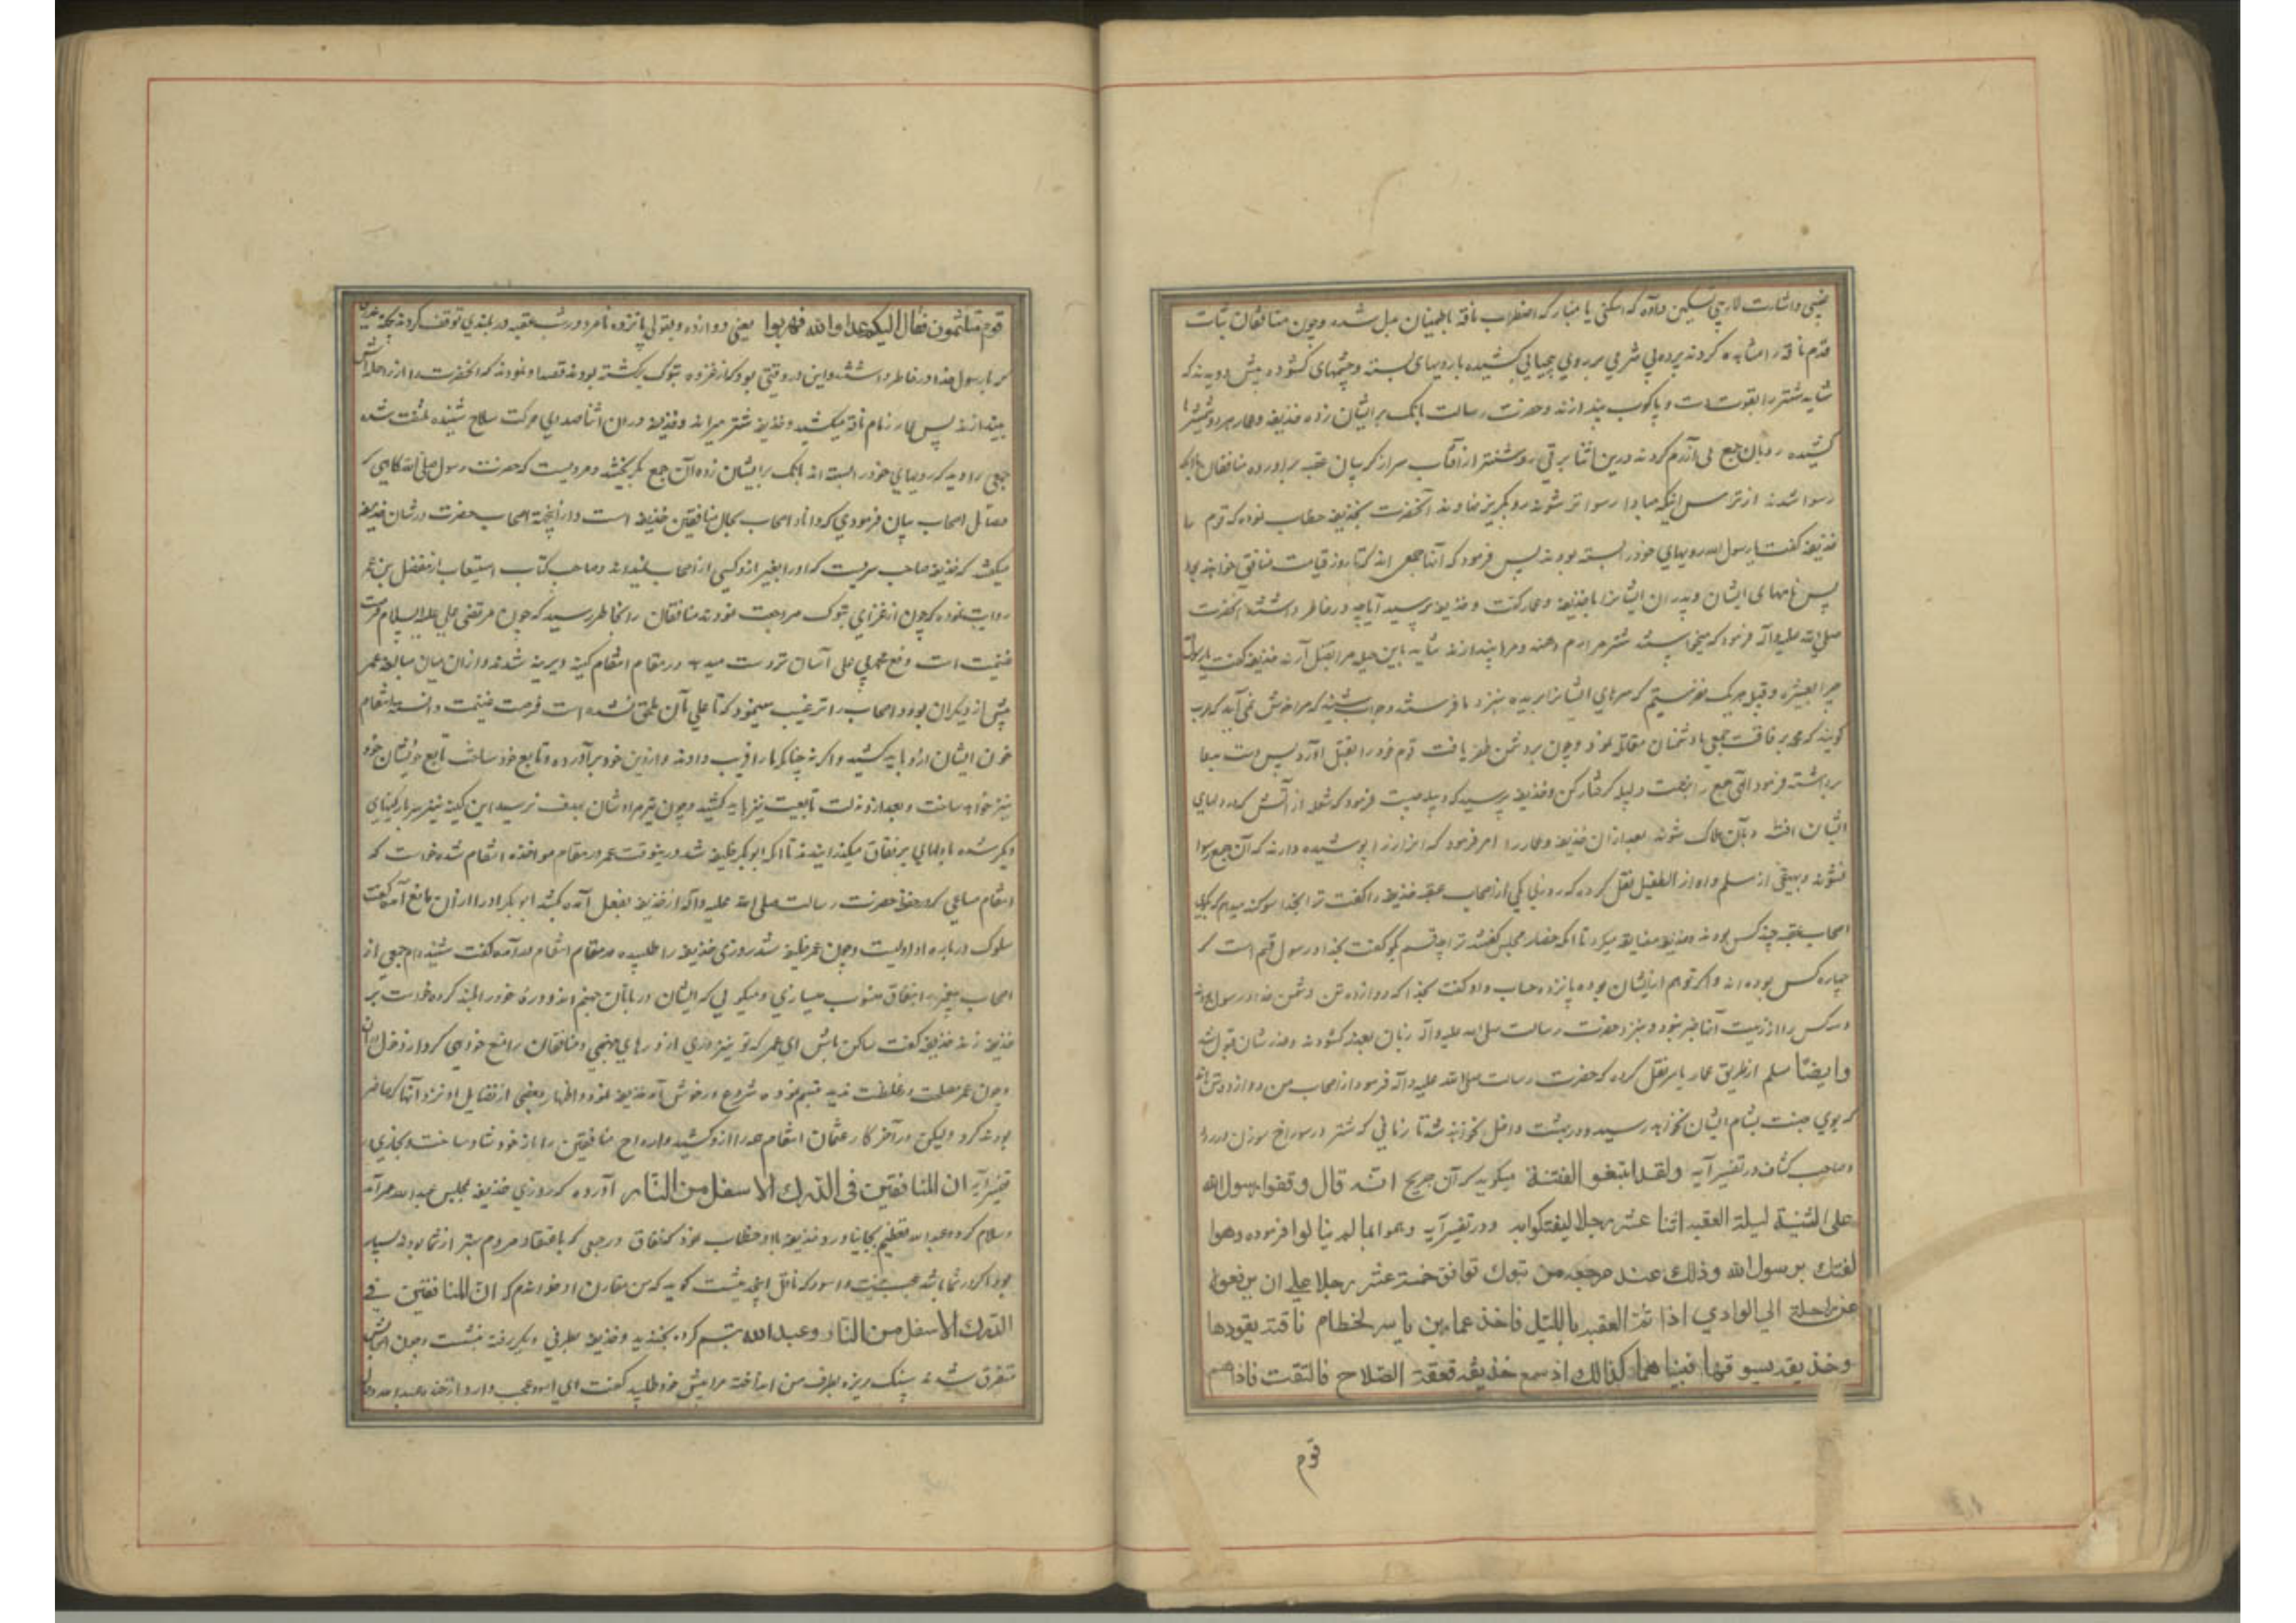 قدم ناقه را مشاهده کردند پرده بی شرمی بر روی بیحیایی کشیده با رویهای بسته و چشمهای کشوده پیش دویدند که
شاید شتر را بقوت دست و پاکوب بیندازند و حضرت رسالت بانک بر ایشان زده حذیفه و عمار هر دو شمشیرها
کشیده رو بان جمع بی آزرم کردند درین اثنا برقی روشنتر از آفتاب سر از کریبان عقبه براورده منافقان
رسوا شدند از ترس اینکه مبادا رسواتر شوند رو بکریز نهادند آنحضرت بحذیفه خطاب نموده که قوم را
حذیفه کفت یا رسول الله رویهای خود را بسته بودند پس فرمود که آنها جمعی اند که تا روز قیامت منافق خواهند بود
پس نامهای ایشان و پدران ایشانرا با حذیفه و عمار کفت و حذیفه پرسید آیا چه در خاطر داشتند آنحضرت
صلی الله علیه و آله فرمود که میخواستند شتر مرا رم دهند و مرا بیندازند شاید باین حیل مرا بقتل آرند حذیفه کفت یا رسول الله
چرا بعشیره و قبیله هر یک نفرستیم که سرهای ایشانرا بریده بنزد ما فرستند وجواب شنید که مرا خوش نمی آید که عرب
کویند که محمد برفاقت جمعی با دشمنان مقاتله نمود و چون بر دشمن ظفر یافت قوم خود را بقتل آورد پس دست بدعا
برداشته فرمود الهی جمع را بزحمت دبیله کرفتار کن و حذیفه پرسید که دبیله چیست فرمود که شعله از آتش که در دلهای
ایشان افتد و بآن هلاک شوند بعد از ان حذیفه و عمار را امر فرمود که این راز را پوشیده دارند که آن جمع رسوا
نشوند و بیهقی از مسلم و او از ابو الطفیل نقل کرده که روزی یکی از اصحاب عقبه حذیفه را کفت ترا بخدا سوکند میدهم که بکوی
اصحاب عقبه چند کس بودند و حذیفه مضایقه میکرد تا آنکه حضار مجلس کفتند ترا چه قسم بکو کفت بخدا و رسول قسم است که
چهارده کس بوده اند و اکر تو هم از ایشان بوده پانزده حساب و او کفت بخدا که دوازده تن دشمن خدا و رسول بودند
و سه کس را از نیت آنها خبر نبود و بنزد حضرت رسالت صلی الله علیه و آله زبان بعذر کشودند و عذرشان قبول شد
وایضا مسلم از طریق عمار یاسر نقل کرده که حضرت رسالت صلی الله علیه و آله فرمود از اصحاب من دوازده تن اند
که بوی جنت بمشام ایشان نخواهد رسید و در بهشت داخل نخواهند شد تا زمانی که شتر در سوراخ سوزن در رود
وصاحب کشاف در تفسیر آیه ولقد ابتغوا الفتنة میکوید که آن جریح انه قال وقفوا لرسول الله
علی الثنیة لیلة العقبه اثنا عشر رجلا لیفتکوا به ودر تفسیر آیه وهموا بما لم ینالوا فرموده وهوا
لفتك برسول الله وذلك عند مرجعه من تبوك توافق خمسة عشر رجلا علی ان یدفعوه
عن راحلته الی الوادی اذا تسنم العقبه باللیل فاخذ عمار بن یاسر بخطام ناقته یقودها
وحذیفه یسوقها فبینا هما کذالك اذ سمع حذیفه قعقعة السلاح فالتفت فاذا هم
قوم
قوم متلثمون فقال الیکم یا اعداء الله فهربوا یعنی دوازده و بقولی پانزده نامرد در شب عقبه در بلندی توقف کردند بجهة غدری
که با رسول خدا در خاطر داشتند و این در وقتی بود که از غزوه تبوک برکشته بودند قصد نمودند که آنحضرت را از راحله اش
بیندازند پس عمار زمام ناقه میکشید و حذیفه شتر میراند و حذیفه در ان اثنا صدای حرکت سلاح شنیده ملتفت شد
جمعی را دید که رویهای خود را بسته اند بانک بر ایشان زده آن جمع بکریختند و مرویست که حضرت رسول صلی الله کاهی که
فضائل اصحاب بیان فرمودی که داناتر اصحاب بحال منافقین حذیفه است و از اینجهة اصحاب حضرت در شان حذیفه
میکفتند که حذیفه صاحب سریست که او را بغیر ازو کسی از اصحاب نمیداند وصاحب کتاب استیعاب از مفضل بن عمر
روایت نموده که چون از غزای تبوک مراجعت نمودند منافقان را بخاطر رسید که چون مرتضی علی علیه السلام
غنیمت است و دفع محمد بی علی آسان تر دست میدهد در مقام انتقام کینه دیرینه شدند و از ان میان مبالغه عمر
بیش از دیکران بود و اصحاب را ترغیب مینمود که تا علی بآن ملحق نشده است فرصت غنیمت دانسته انتقام
خون ایشان ازو باید کشید و اکر نه چنانکه ما را فریب داده و از دین خود برآورده و تابع خود ساخت تابع خویشان خود
نیز خواهد ساخت و بعد ازو ذلت تابعیت نیز باید کشید و چون تیر مرادشان بهدف نرسید این کینه نیز سربار کینهای
دیکر شده با دلهای پر نفاق میکذرانیدند تا آنکه ابوبکر خلیفه شد درینوقت عمر در مقام مواخذه انتقام شده خواست که
انتقام مساعی که در حفظ حضرت رسالت صلی الله علیه و آله از حذیفه بفعل آمده کشد ابوبکر او را از ان مانع آمده کفت
سلوک در باره او اولیست و چون عمر خلیفه شد روزی حذیفه را طلبیده در مقام انتقام درآمده کفت شنیده ام جمعی از
اصحاب پیغمبر را بنفاق منسوب میسازی و میکویی که ایشان دربانان جهنم اند و دره خود را بلند کرده خواست بر
حذیفه زند حذیفه کفت ساکن باش ای عمر که تو نیز دری از درهای جهنمی و منافقان را منع خواهی کرد از دخول ان
وچون عمر صلابت وغلظت دید تبسم نموده شروع در خوش آمد حذیفه نمود و اظهار بعضی از فضایل او نزد آنها که حاضر
بودند کرد ولیکن در آخر کار عثمان انتقام عمر را ازو کشید و ارواح منافقین را باز خود شاد ساخت و بخاری در
تفسیر آیه ان المنافقین فی الدرك الاسفل من النار آورده که روزی حذیفه بمجلس عبد الله درآمد
وسلام کرد و عبد الله تعظیم بجا نیاورد و حذیفه با او خطاب نمود که نفاق در جمعی که باعتقاد مردم بهتر از شما بودند بسیار
بود اکر در شما باشد عجب نیست و اسود که ناقل این حدیث کوید که من مقارن او خواندم که ان المنافقین فی
الدرك الاسفل من النار وعبد الله تبسم کرده بخندید وحذیفه بطرفی دیکر رفته نشست وچون
متفرق شدند سنک ریزه بطرف من انداخته مرا پیش خود طلبید کفت ای اسود عجب دارد از خنده عبد الله